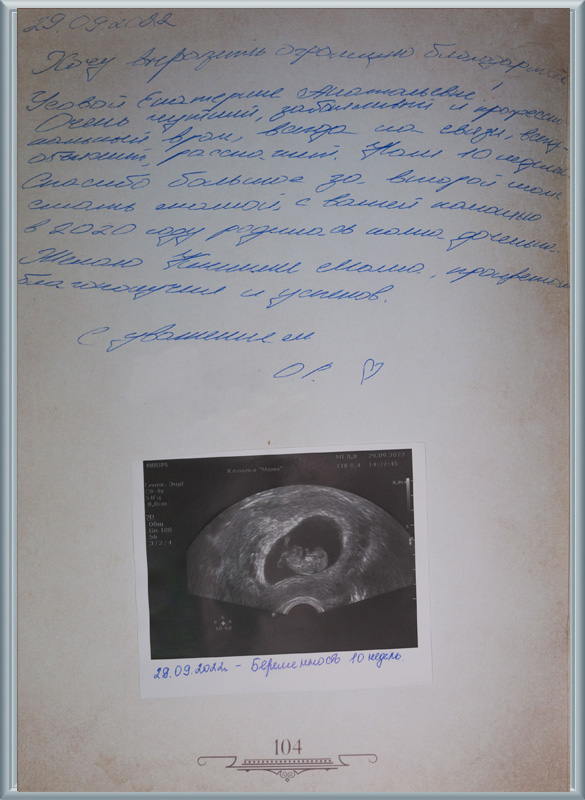 29.09.2022
Хочу выразить огромную благодарность
Усовой Екатерине Анатольевне!
Очень чуткий, заботливый и професси-
нальный врач, всегда на связи, всё
расскажет. Нам 10 недель
Спасибо большое за второй шанс
стать мамой, с вашей помощью
в 2020 году родилась наша доченька.
Желаю Клинике Мама, процветания
благополучия и успехов.
С уважением
О.Р.
PHILIPS
Клиника "Мама"
MI 0,8 29.09.2022
TIS 0,4
C9-4v
2D
28.09.2022г. - Беременность 10 недель
104